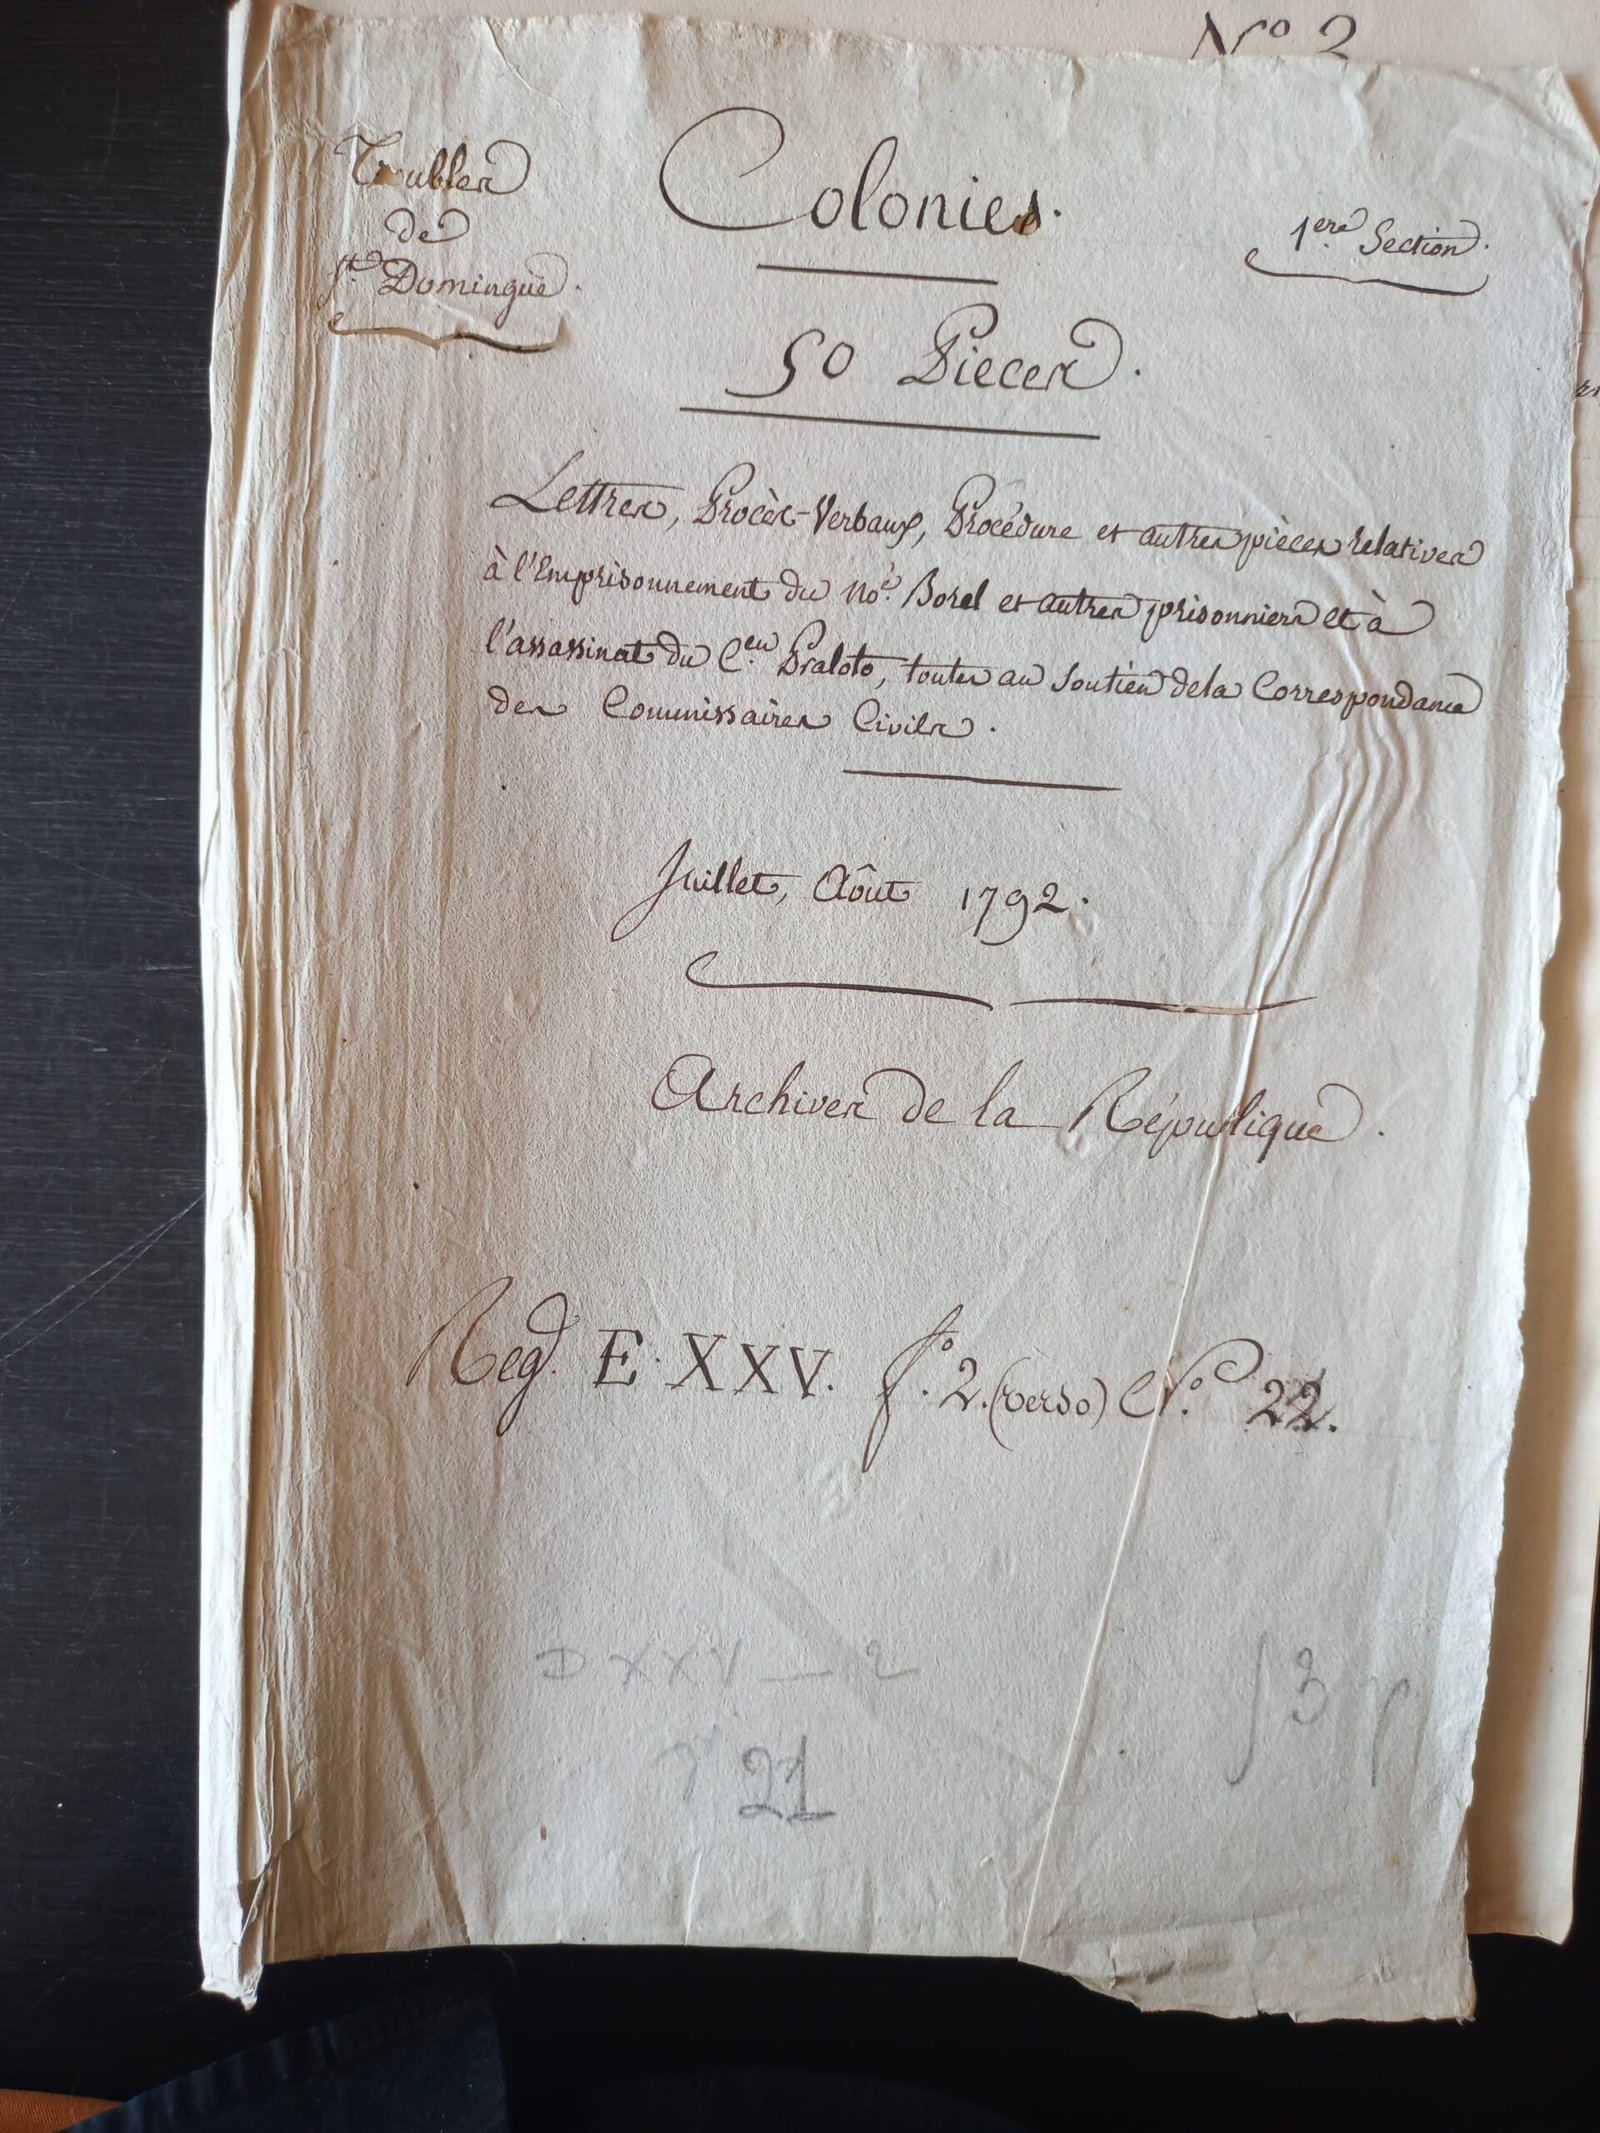 N° 2
Troubles
de
St. Domingue.
Colonies.
1ere. Section.
50 Pieces.
Lettres, Procès-Verbaux, Procédure et autres pièces relatives
à l'Emprisonnement du no.é Borel et autres prisonniers et à
l'assassinat du C.en Praloto, toutes au soutien de la Correspondance
des Commissaires Civils.
Juillet, Août 1792.
Archives de la République.
Reg. E. XXV. f.° 2. (verso) N.° 22.
D XXV — 2
21
53 p